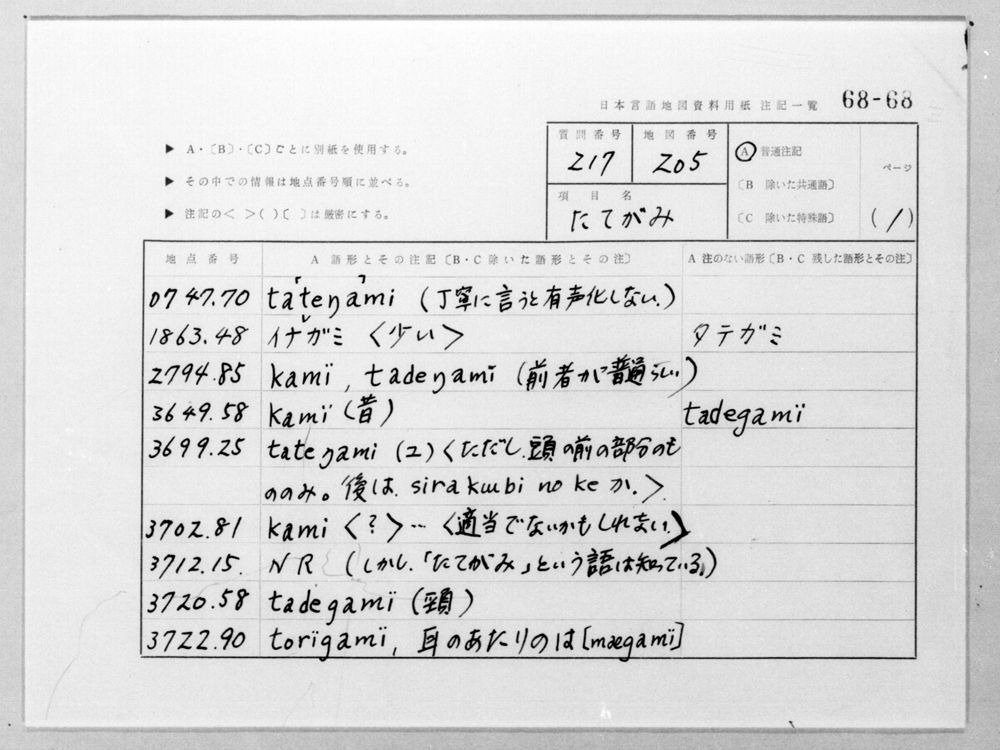 日本言語地図資料用紙 注記一覧 68-68
▶ A・〔B〕・〔C〕ごとに別紙を使用する。
▶ その中での情報は地点番号順に並べる。
▶ 注記の< >( )〔 〕は厳密にする。
質問番号 地図番号
217 205
項目名
たてがみ
Ⓐ 普通注記
〔B 除いた共通語〕
〔C 除いた特殊語〕
ページ
(1)
地点番号 A 語形とその注記〔B・C除いた語形とその注〕 A 注のない語形〔B・C 残した語形とその注〕
0747.70 「tateŋa」mi (丁寧に言うと有声化しない.)
1863.48 イナガミ <少い> タテガミ
2794.85 kamï, tadeŋamï (前者が普通らしい)
3649.58 kamï (昔) tadegamï
3699.25 tateŋami (2) <ただし.頭の前の部分のも
ののみ。後は. sirakɯbi no ke か.>
3702.81 kami <?> … <適当でないかもしれない.>
3712.15. NR (しかし.「たてがみ」という語は知っている.)
3720.58 tadegamï (頸)
3722.90 torïgamï, 耳のあたりのは[mægamï]